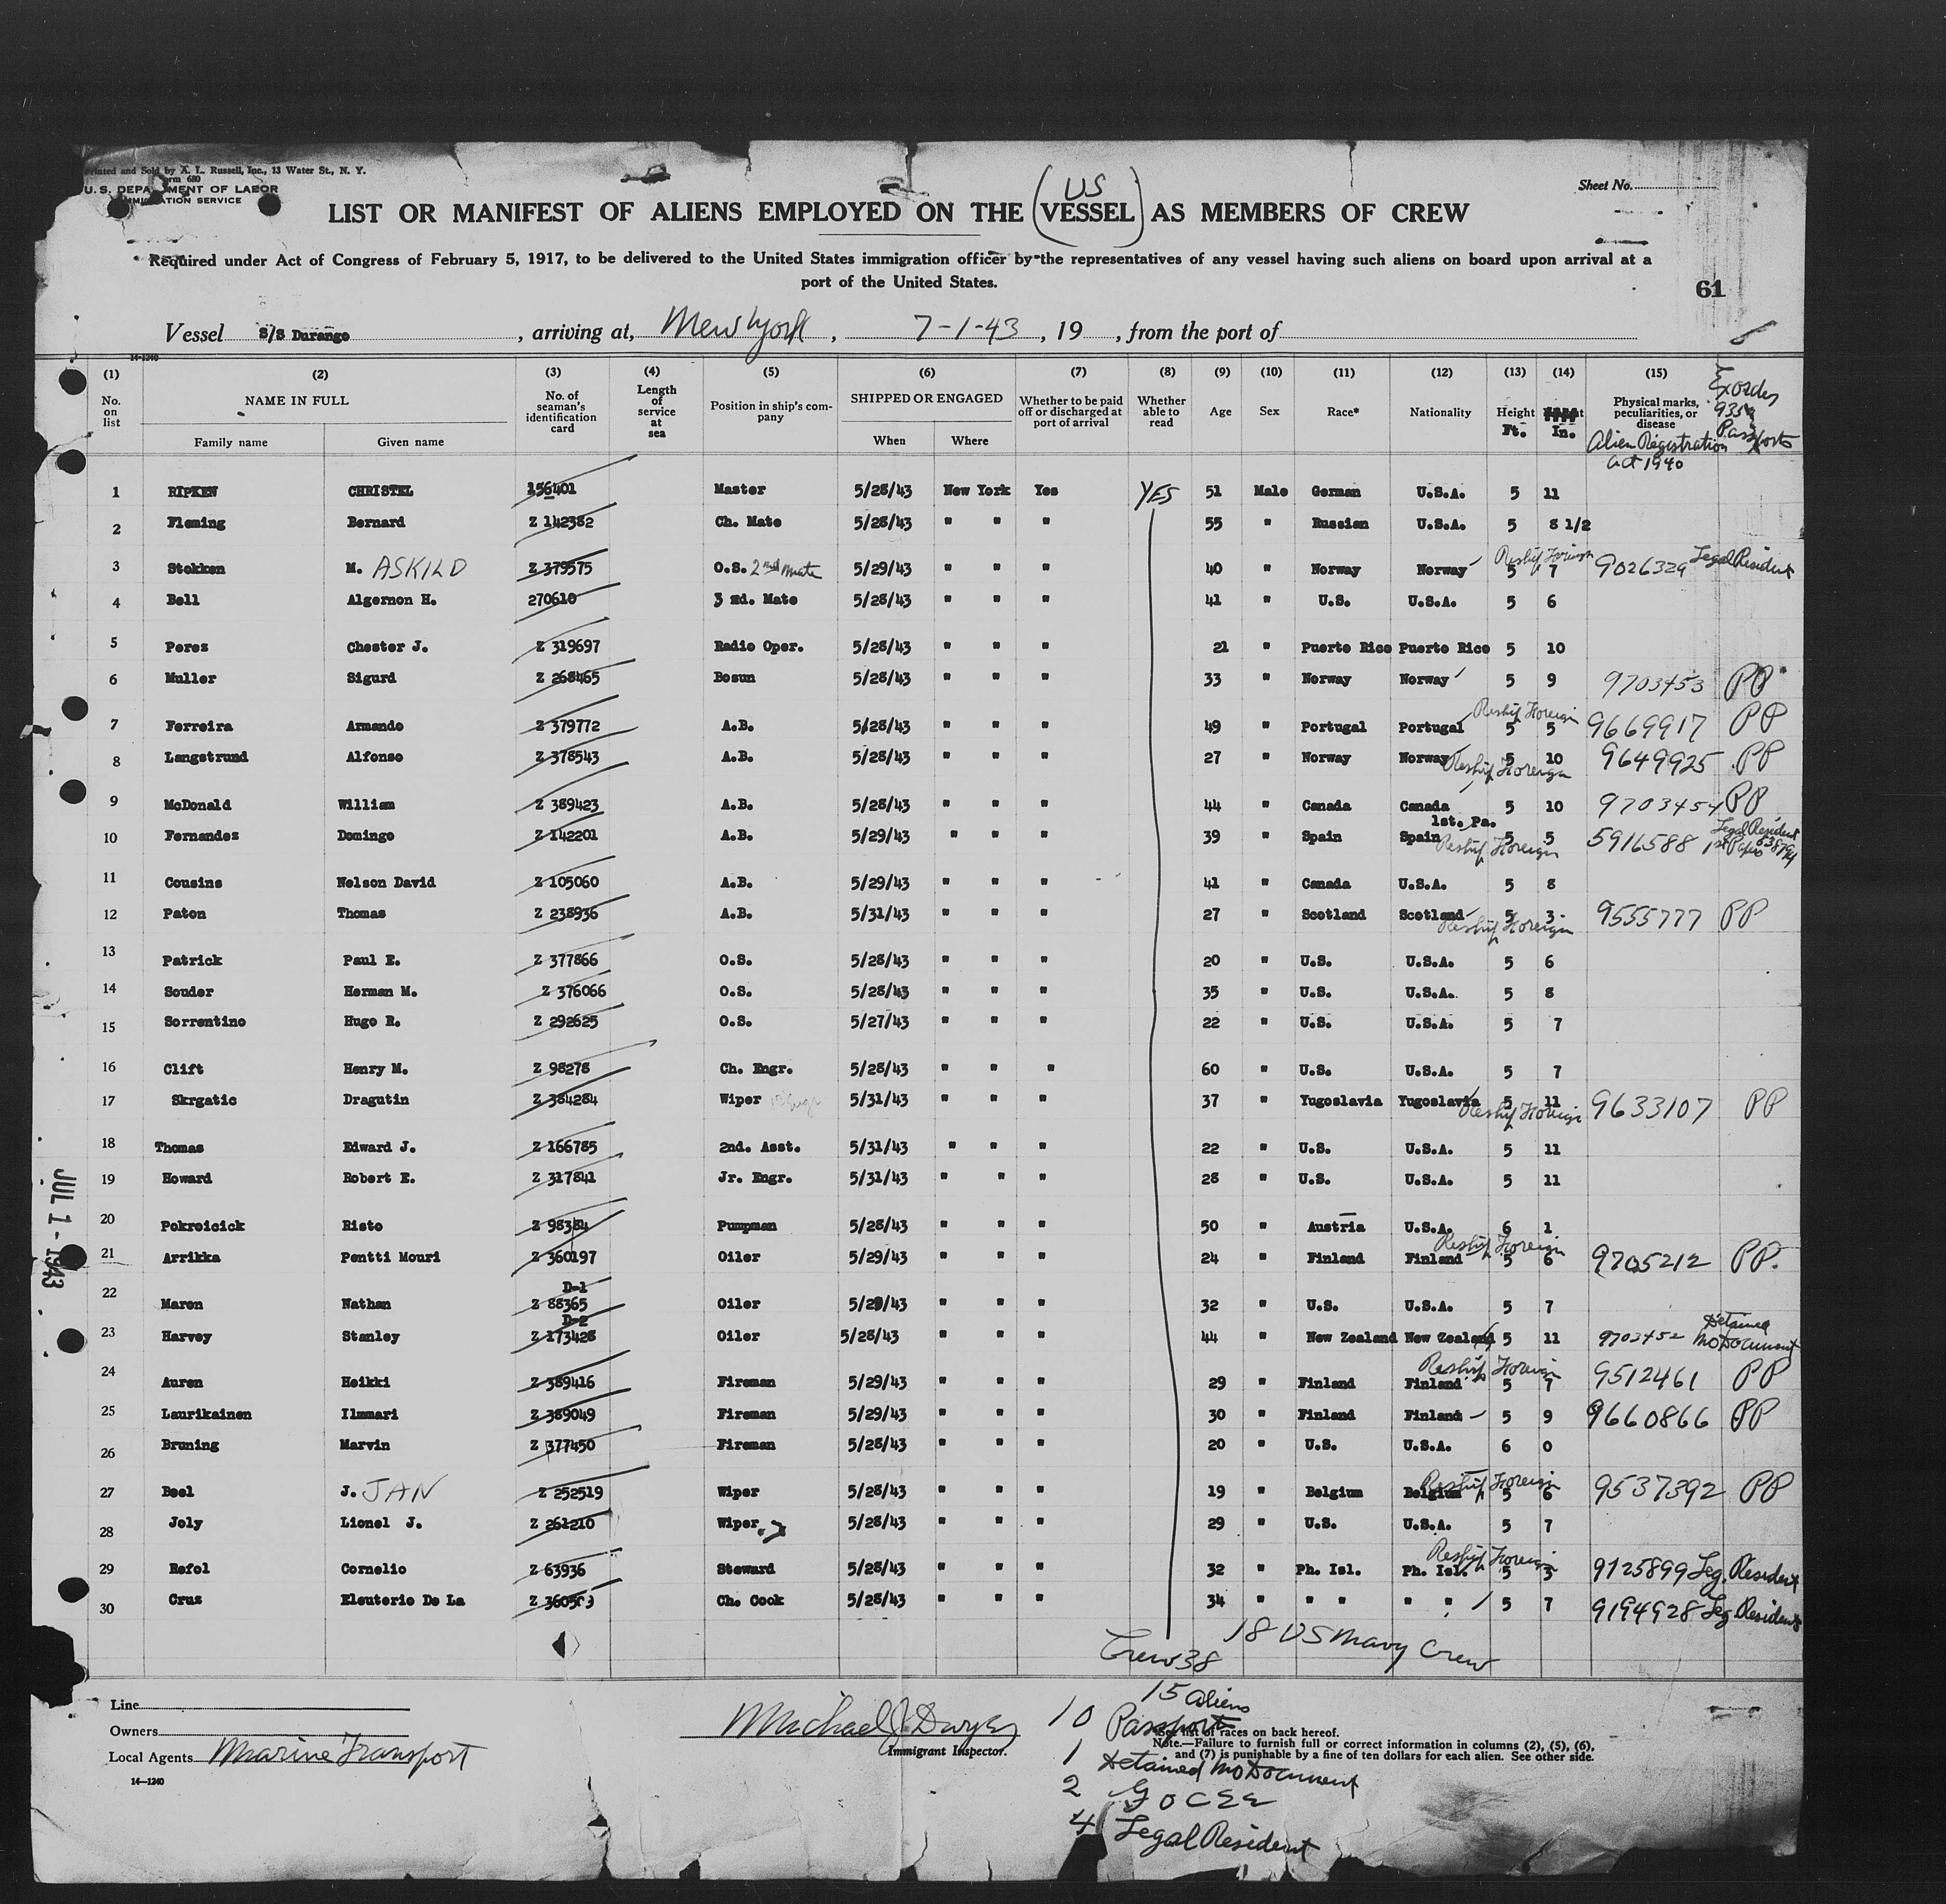 Printed and Sold by A. L. Russell, Inc., 13 Water St., N. Y.
Form 680
U. S. DEPARTMENT OF LABOR
IMMIGRATION SERVICE
Sheet No.
US
LIST OR MANIFEST OF ALIENS EMPLOYED ON THE (VESSEL) AS MEMBERS OF CREW
Required under Act of Congress of February 5, 1917, to be delivered to the United States immigration officer by the representatives of any vessel having such aliens on board upon arrival at a
port of the United States.
61
Vessel S/S Durango, arriving at, New York, 7-1-43, 19, from the port of
14-1240
(1) (2) (3) (4) (5) (6) (7) (8) (9) (10) (11) (12) (13) (14) (15)
No. on list NAME IN FULL Family name Given name No. of seaman's identification card Length of service at sea Position in ship's company SHIPPED OR ENGAGED When Where Whether to be paid off or discharged at port of arrival Whether able to read Age Sex Race* Nationality Height Ft. In. Physical marks, peculiarities, or disease Alien Registration Act 1940 Passports
1 RIPKEN CHRISTEL 156401 Master 5/28/43 New York Yes YES 51 Male German U.S.A. 5 11
2 Fleming Bernard Z 142382 Ch. Mate 5/28/43 " " " 55 " Russian U.S.A. 5 8 1/2
3 Stokken M. ASKILD Z 379575 O.S. 2nd Mate 5/29/43 " " " 40 " Norway Norway Reship Foreign 5 7 9026329 Legal Resident
4 Bell Algernon H. 270610 3 rd. Mate 5/28/43 " " " 41 " U.S. U.S.A. 5 6
5 Perez Chester J. Z 319697 Radio Oper. 5/28/43 " " " 21 " Puerto Rico Puerto Rico 5 10
6 Muller Sigurd Z 268465 Bosun 5/28/43 " " " 33 " Norway Norway 5 9 9703453 PP
7 Ferreira Armando Z 379772 A.B. 5/28/43 " " " 49 " Portugal Portugal Reship Foreign 5 5 9669917 PP
8 Langstrund Alfonso Z 378543 A.B. 5/28/43 " " " 27 " Norway Norway Reship Foreign 5 10 9649925 PP
9 McDonald William Z 389423 A.B. 5/28/43 " " " 44 " Canada Canada 5 10 9703454 PP
10 Fernandez Domingo Z 142201 A.B. 5/29/43 " " " 39 " Spain Spain 1st. Pa. Reship Foreign 5 5 5916588 Legal Resident
11 Cousins Nelson David Z 105060 A.B. 5/29/43 " " " 41 " Canada U.S.A. 5 8
12 Paton Thomas Z 238936 A.B. 5/31/43 " " " 27 " Scotland Scotland Reship Foreign 5 3 9555777 PP
13 Patrick Paul E. Z 377866 O.S. 5/28/43 " " " 20 " U.S. U.S.A. 5 6
14 Souder Herman M. Z 376066 O.S. 5/28/43 " " " 35 " U.S. U.S.A. 5 8
15 Sorrentino Hugo R. Z 292625 O.S. 5/27/43 " " " 22 " U.S. U.S.A. 5 7
16 Clift Henry M. Z 98278 Ch. Engr. 5/28/43 " " " 60 " U.S. U.S.A. 5 7
17 Skrgatic Dragutin Z 384284 Wiper 5/31/43 " " " 37 " Yugoslavia Yugoslavia Reship Foreign 5 11 9633107 PP
18 Thomas Edward J. Z 166785 2nd. Asst. 5/31/43 " " " 22 " U.S. U.S.A. 5 11
19 Howard Robert E. Z 317841 Jr. Engr. 5/31/43 " " " 28 " U.S. U.S.A. 5 11
20 Pokroicick Risto Z 98384 Pumpman 5/28/43 " " " 50 " Austria U.S.A. 6 1
21 Arrikka Pentti Mouri Z 360197 Oiler 5/29/43 " " " 24 " Finland Finland Reship Foreign 5 6 9705212 PP.
22 Maron Nathan D-1 Z 88365 Oiler 5/29/43 " " " 32 " U.S. U.S.A. 5 7
23 Harvey Stanley D-2 Z 173428 Oiler 5/28/43 " " " 44 " New Zealand New Zealand 5 11 9703452 Detained No Document
24 Auren Heikki Z 389416 Fireman 5/29/43 " " " 29 " Finland Finland Reship Foreign 5 7 9512461 PP
25 Laurikainen Ilmmari Z 389049 Fireman 5/29/43 " " " 30 " Finland Finland 5 9 9660866 PP
26 Bruning Marvin Z 377450 Fireman 5/28/43 " " " 20 " U.S. U.S.A. 6 0
27 Beel J. JAN Z 252519 Wiper 5/28/43 " " " 19 " Belgium Belgium Reship Foreign 5 6 9537392 PP
28 Joly Lionel J. Z 261210 Wiper 5/28/43 " " " 29 " U.S. U.S.A. 5 7
29 Refol Cornelio Z 63936 Steward 5/28/43 " " " 32 " Ph. Isl. Ph. Isl. Reship Foreign 5 3 9125899 Leg. Resident
30 Cruz Eleuterio De La Ch. Cook 5/28/43 " " " 34 " " " " " 5 7 9194928 Leg Resident
JUL 1 - 1943
Crew 38 18 US Navy Crew
15 Aliens
Line
Owners
Local Agents Marine Transport
14—1240
Michael J. Dwyer
Immigrant Inspector.
10 Passports
1 Detained No Document
2
4 Legal Resident
*See list of races on back hereof.
Note.—Failure to furnish full or correct information in columns (2), (5), (6),
and (7) is punishable by a fine of ten dollars for each alien. See other side.